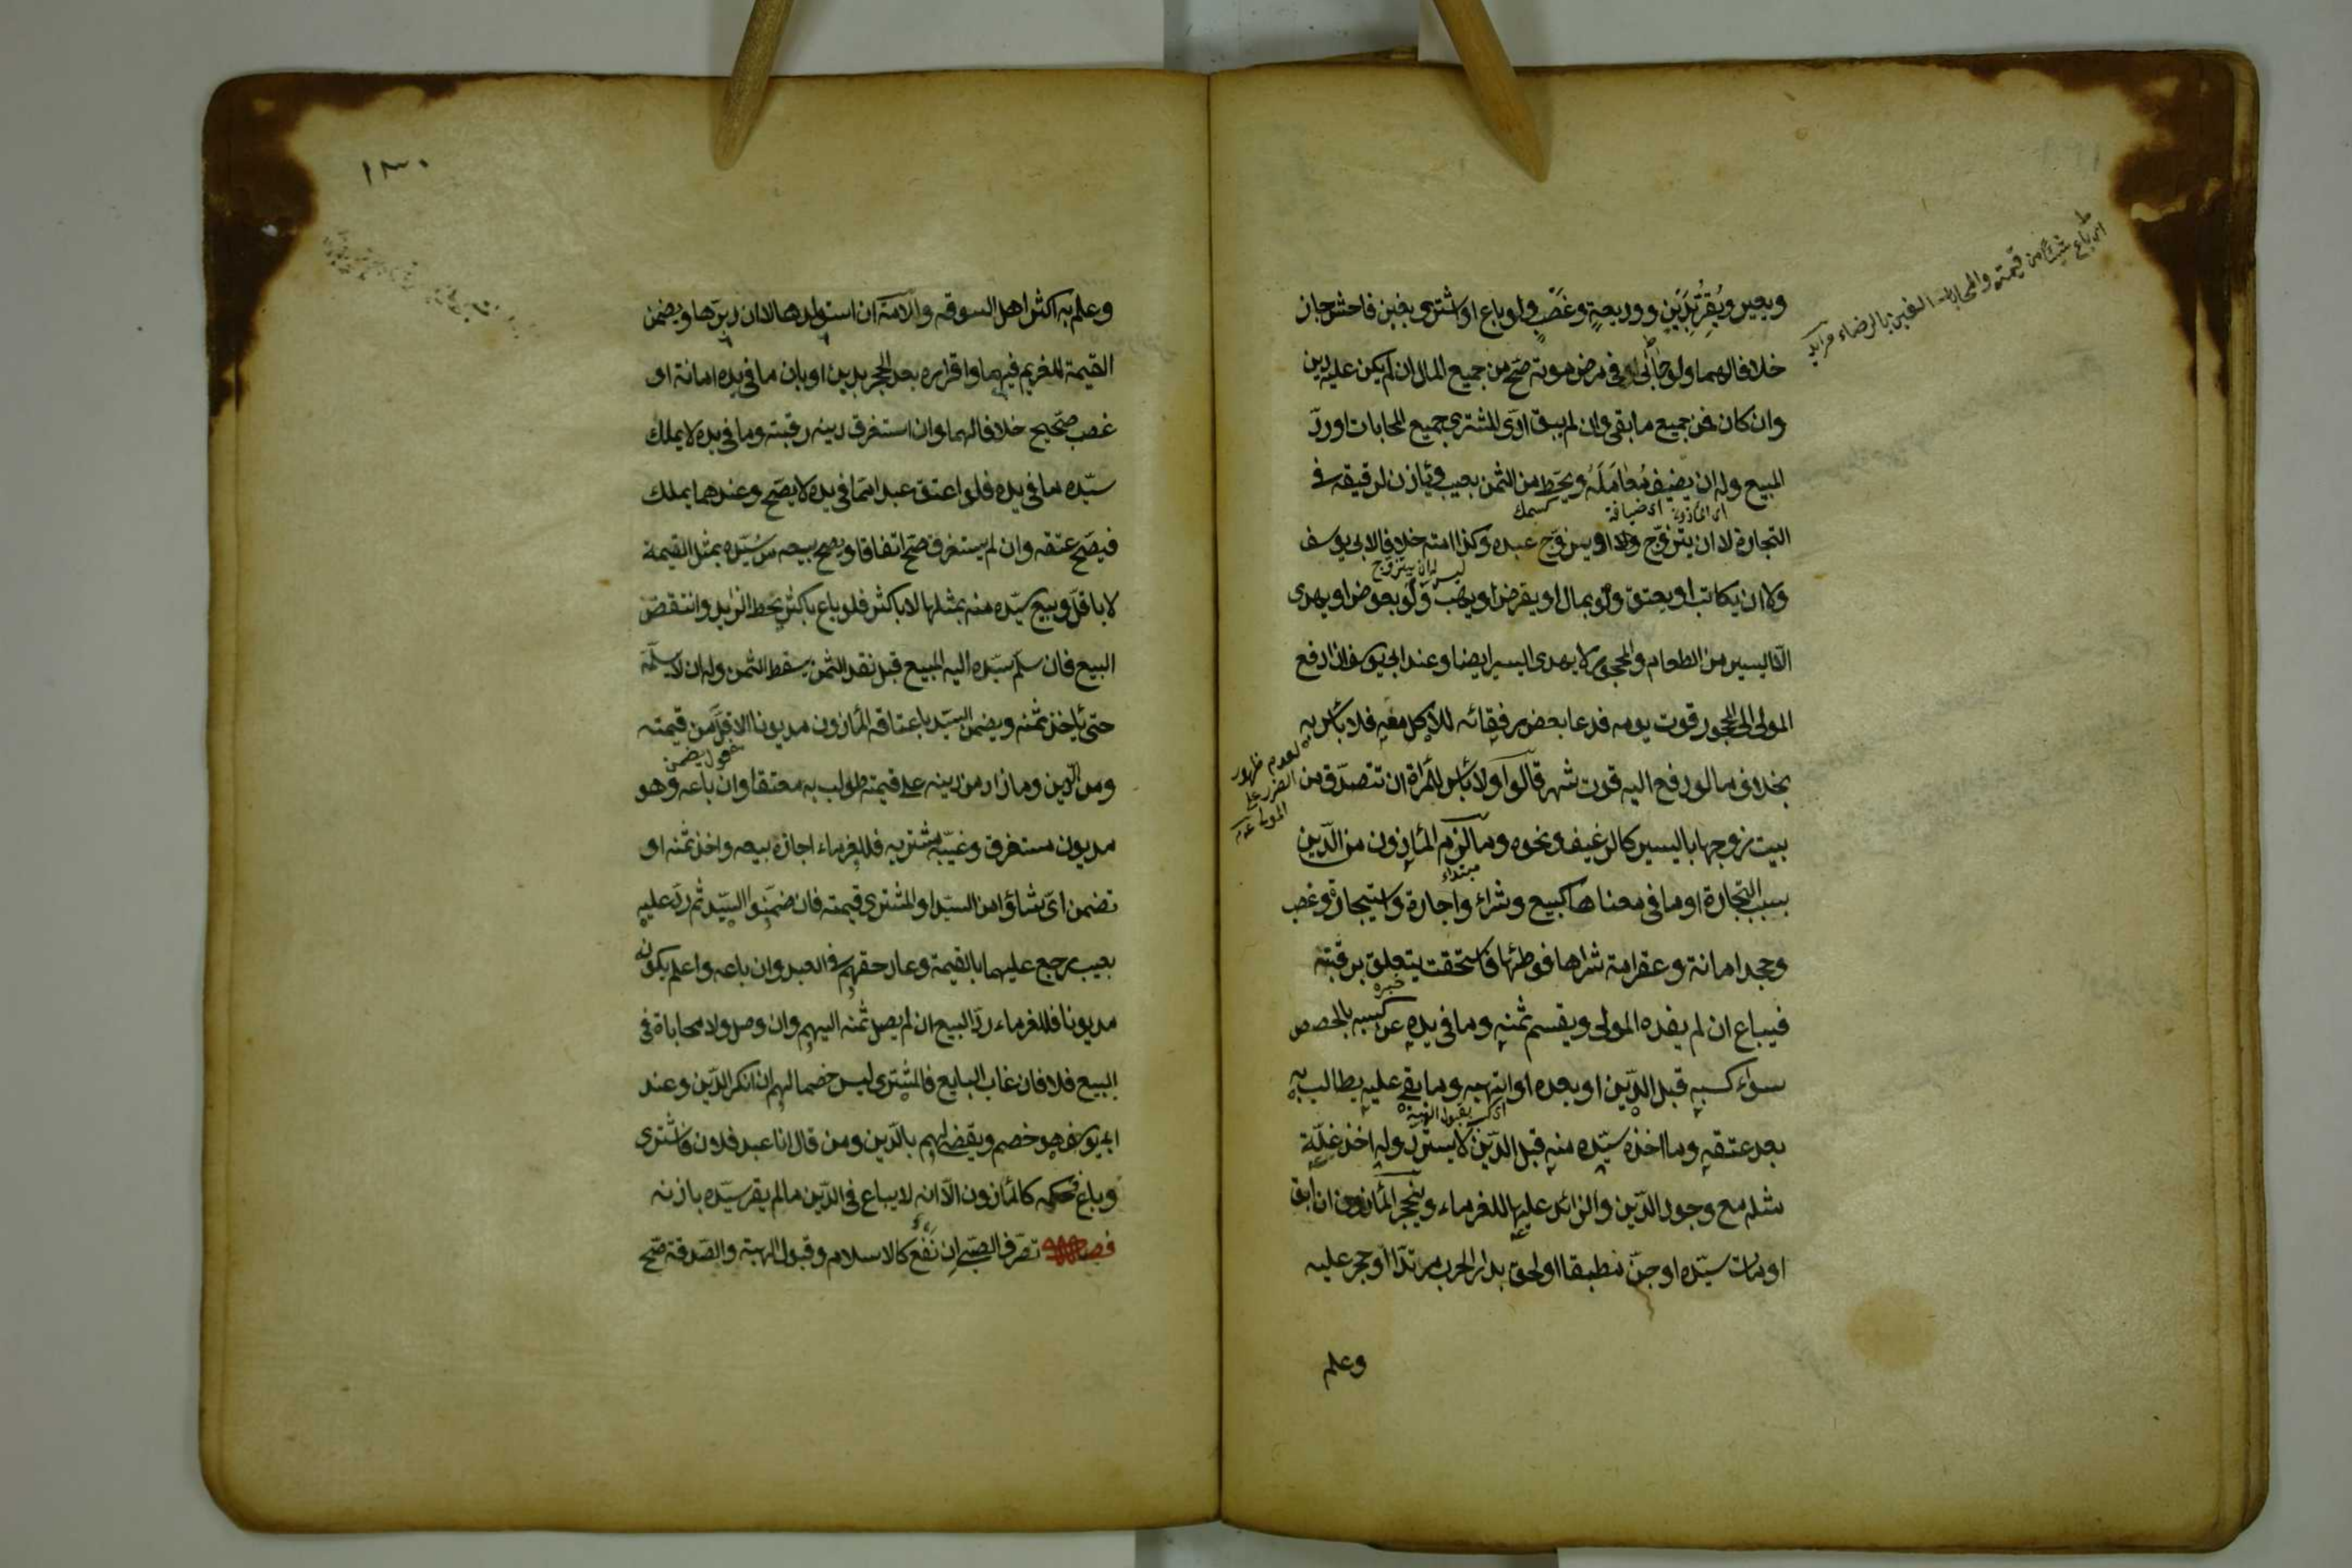 ويعير ويُقِرُّ بِدَيْنٍ ووديعةٍ وغصبٍ ولو باع او اشترى بغبن فاحش جاز
خلافا لهما ولو حابى في مرض موته صحّ من جميع المال ان لم يكن عليه دين
وان كان فمن جميع ما بقى وان لم يبق ادّى المشترى جميع المحابات او ردّ
المبيع وله ان يضيف مُعامِلَهُ ويحطّ من الثمن بعيب ويأذن لرقيقه فى
اى المأذون اى ضيافة
التجارة لا ان يتزوّج ولا ان يزوّج عبده وكذا امته خلافا لابى يوسف
ليس له ان يتزوج
ولا ان يكاتب او يعتق ولو بمال او يقرض او يهب ولو بعوض او يهدى
الّا اليسير من الطعام والمحجور لا يهدى اليسير ايضا وعند ابى يوسف اذا دفع
المولى الى المحجور قوت يومه فدعا بعض رفقائه للاكل معه فلا بأس به
بخلاف ما لو دفع اليه قوت شهر قالوا ولا بأس للمرأة ان تتصدّق من
لعدم ظهور
الضرر على
المولى
بيت زوجها باليسير كالرغيف ونحوه وما لزم المأذون من الدّين
مبتداء
بسبب التجارة او ما فى معناها كبيع وشراء واجارة واستيجار وغصب
وجحد امانة وعقر امة شراها فوطئها فاستحقت يتعلق برقبته
خبره
فيباع ان لم يفده المولى ويقسم ثمنه وما فى يده من كسبه بالحصص
سواء كسبه قبل الدّين او بعده او اتهبه وما بقى عليه يطالب به
اى كسب بقبول الهبة
بعد عتقه وما اخذه سيّده منه قبل الدّين لا يستردّ وله اخذ غلّة
مثله مع وجود الدّين والزائد عليها للغرماء وينحجر المأذون ان ابق
او مات سيّده او جنّ مطبقا او لحق بدار الحرب مرتدّا او حجر عليه
وعلم
اى باع شيئا من قيمته والمحاباة الغبن بالرضاء
١٣٠
وعلم به اكثر اهل السوقه والامة ان استولدها لا ان دبّرها ويضمن
القيمة للغريم فيهما واقراره بعد الحجر بدين او بان ما فى يده امانة او
غصب صحيح خلافا لهما وان استغرق دينه رقبته وما فى يده لا يملك
سيّده ما فى يده فلو اعتق عبدا ممّا فى يده لا يصحّ وعندهما يملك
فيصحّ عتقه وان لم يستغرق صحّ اتفاقا ويصح بيعه من سيّده بمثل القيمة
لا باقلّ وبيع سيّده منه بمثلها لا باكثر فلو باع باكثر يحط الزايد وانتقض
البيع فان سلّم سيّده اليه المبيع قبل نقد الثمن سقط الثمن وله ان لا يسلّمه
حتى يأخذ ثمنه ويضمن السيّد باعتاقه المأذون مديونا الاقلّ من قيمته
مفعول يضمن
ومن الدّين وما زاد من دينه على قيمته طولب به معتقا وان باعه وهو
مديون مستغرق وغيّبه مشتريه فللغرماء اجازة بيعه واخذ ثمنه او
تضمين اىّ شاؤا من السيّد او المشترى قيمته فان ضمّنوا السيّد ثم ردّ عليه
بعيب رجع عليهم بالقيمة وعاد حقهم فى العبد وان باعه واعلم بكونه
مديونا فللغرماء ردّ البيع ان لم يصل ثمنه اليهم وان وصل ولا محاباة فى
البيع فلا فان غاب البايع فالمشترى ليس خصما لهم ان انكر الدّين وعند
ابى يوسف هو خصم ويقضى لهم بالدّين ومن قال انا عبد فلان فاشترى
وباع فحكمه كالمأذون الّا انه لا يباع فى الدّين ما لم يقر سيّده باذنه
فصل تصرّف الصّبى ان نَفَعَ كالاسلام وقبول الهبة والصّدقة صحّ